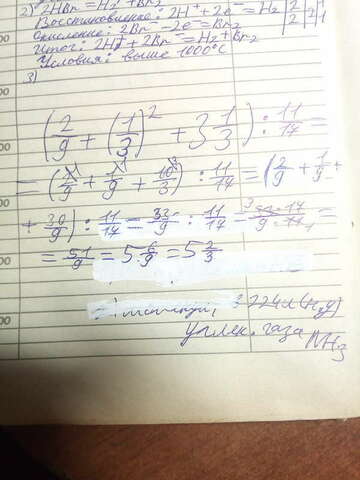 2) 2HBr = H2 + Br2
Восстановление: 2H⁺ + 2e⁻ = H2 | 2 |
Окисление: 2Br⁻ - 2e = Br2 | 2 | 2 | 1
Итог: 2H⁺ + 2Br⁻ = H2 + Br2
Условия: выше 1000°C
3)
(2/9 + (1/3)² + 3 1/3) : 11/17 =
= (2/9 + 1/9 + 10/3) : 11/17 = (2/9 + 1/9 +
+ 30/9) : 11/17 = 33/9 : 11/17 =
= 51/9 = 5 6/9 = 5 2/3
углек. газа
NH3